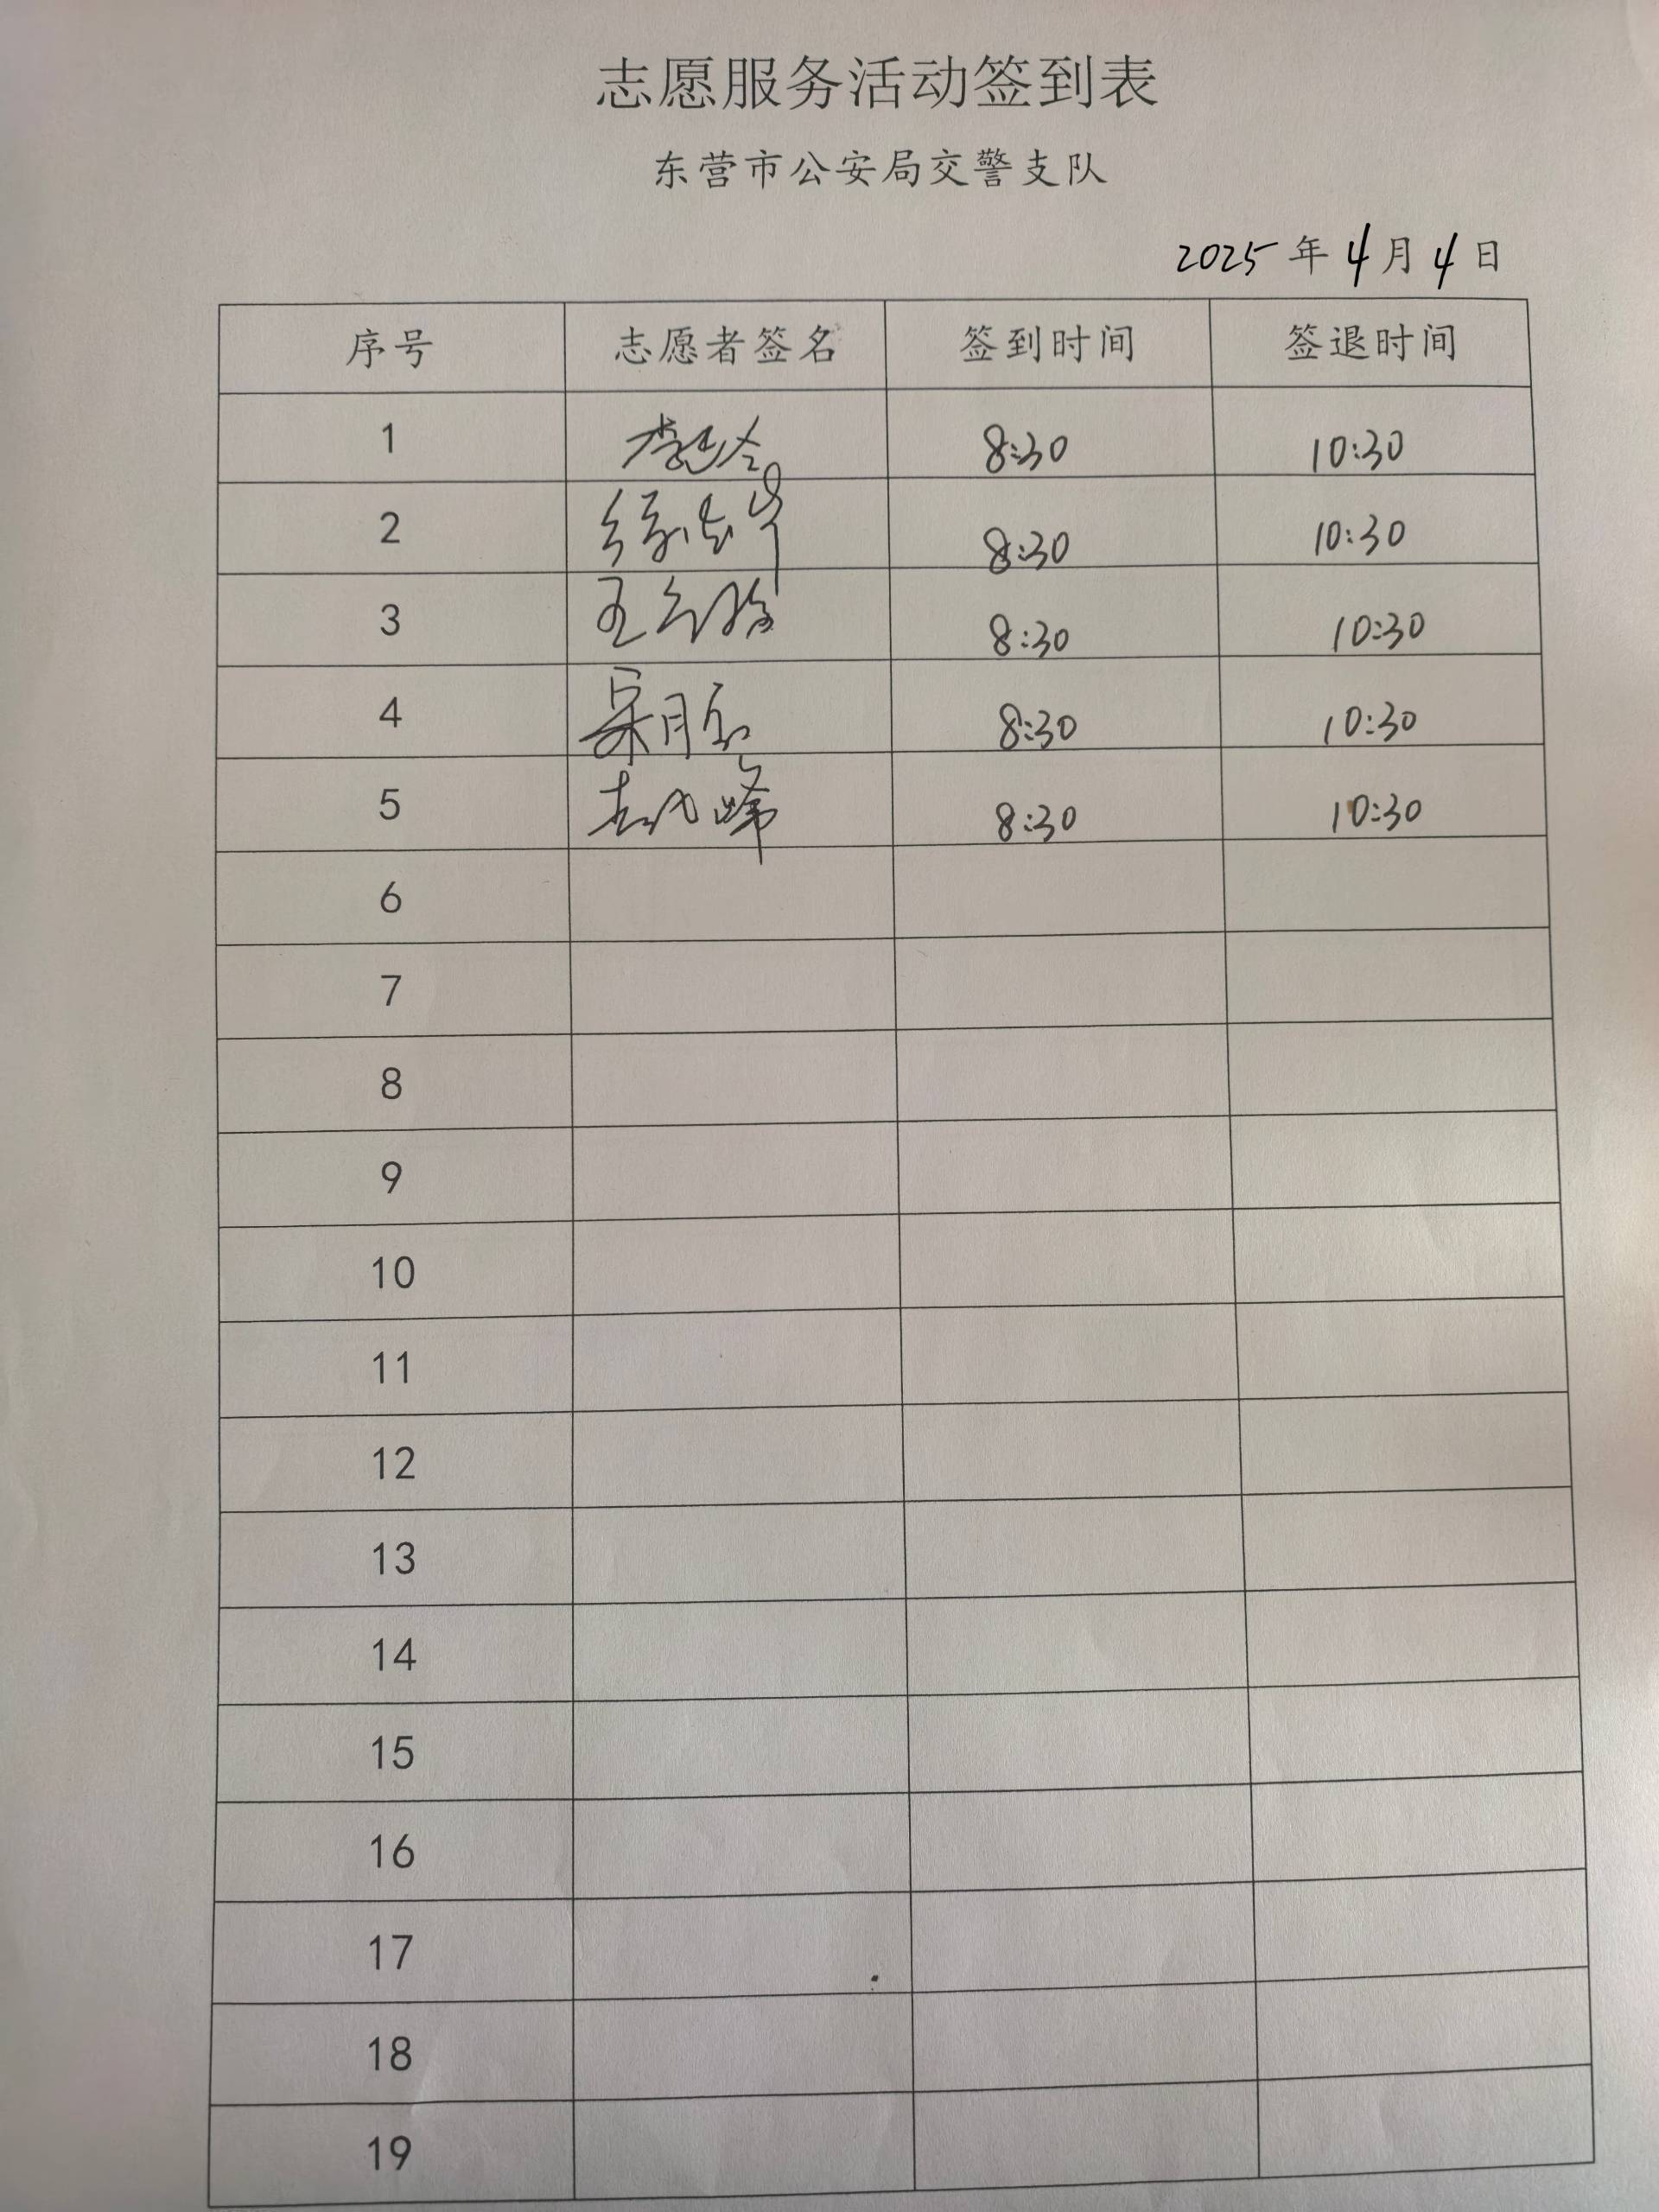 志愿服务活动签到表
东营市公安局交警支队
2025年4月4日
序号 志愿者签名 签到时间 签退时间
1 8:30 10:30
2 8:30 10:30
3 王 8:30 10:30
4 宋月 8:30 10:30
5 峰 8:30 10:30
6
7
8
9
10
11
12
13
14
15
16
17
18
19